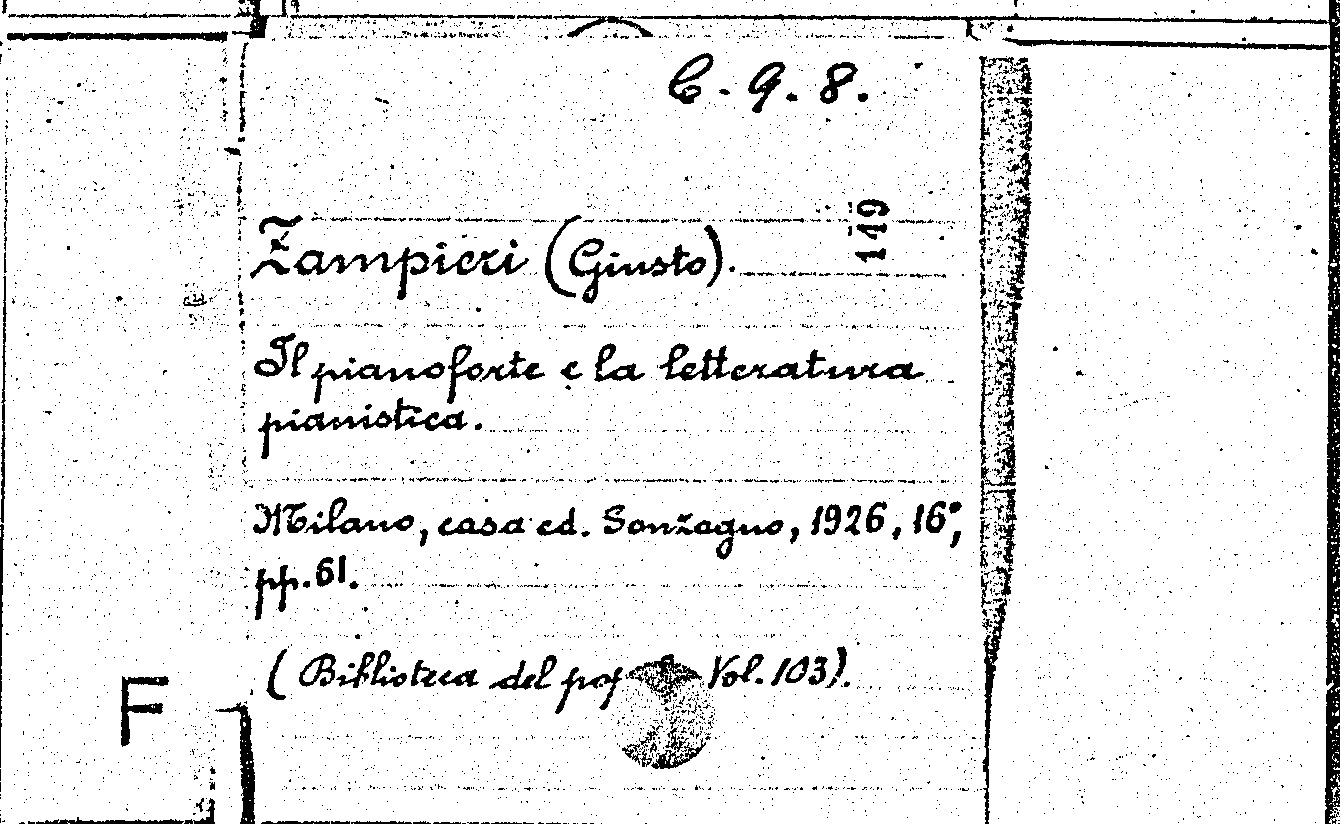 C. 9. 8.
149
Zampieri (Giusto).
Il pianoforte e la letteratura
pianistica.
Milano, casa ed. Sonzogno, 1926, 16°,
pp. 61.
(Biblioteca del Vol. 103).
F